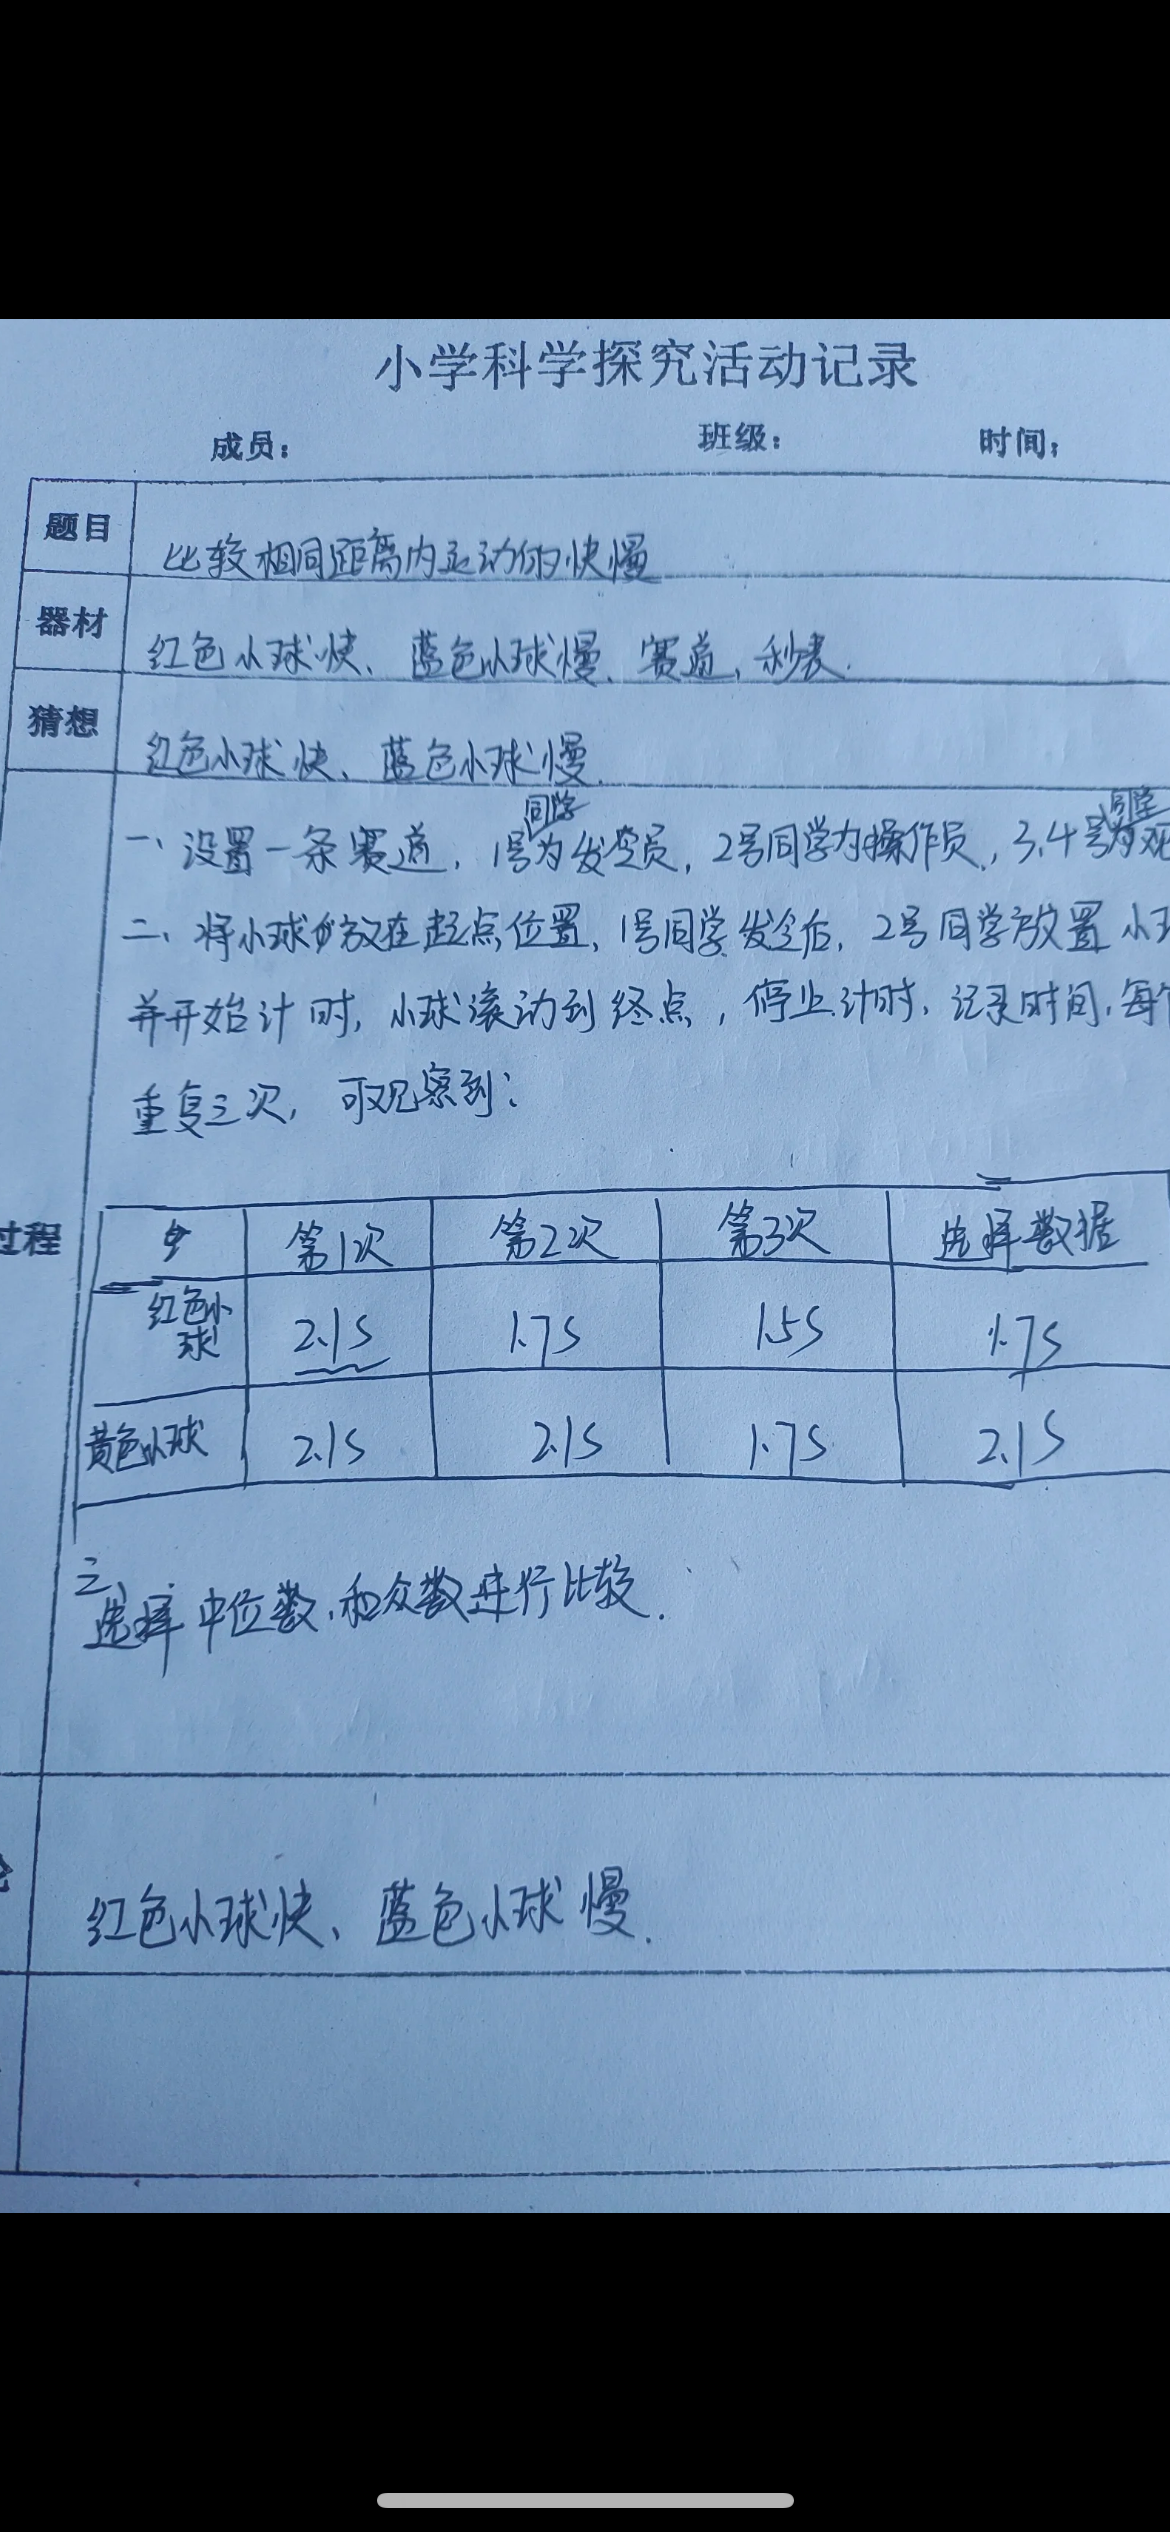 小学科学探究活动记录
成员： 班级： 时间；
题目 比较相同距离内运动的快慢
器材 红色小球快、蓝色小球慢、赛道、秒表.
猜想 红色小球快、蓝色小球慢.
同学 同学
一、设置一条赛道，1号为发令员，2号同学为操作员，3、4号为观
二、将小球放在起点位置，1号同学发令后，2号同学放置小球
并开始计时，小球滚动到终点，停止计时，记录时间，每个
重复三次，可观察到：
过程
第1次 第2次 第3次 选择数据
红色小球 2.1S 1.7S 1.5S 1.7S
黄色小球 2.1S 2.1S 1.7S 2.1S
三、
选择中位数，和众数进行比较.
红色小球快、蓝色小球慢.